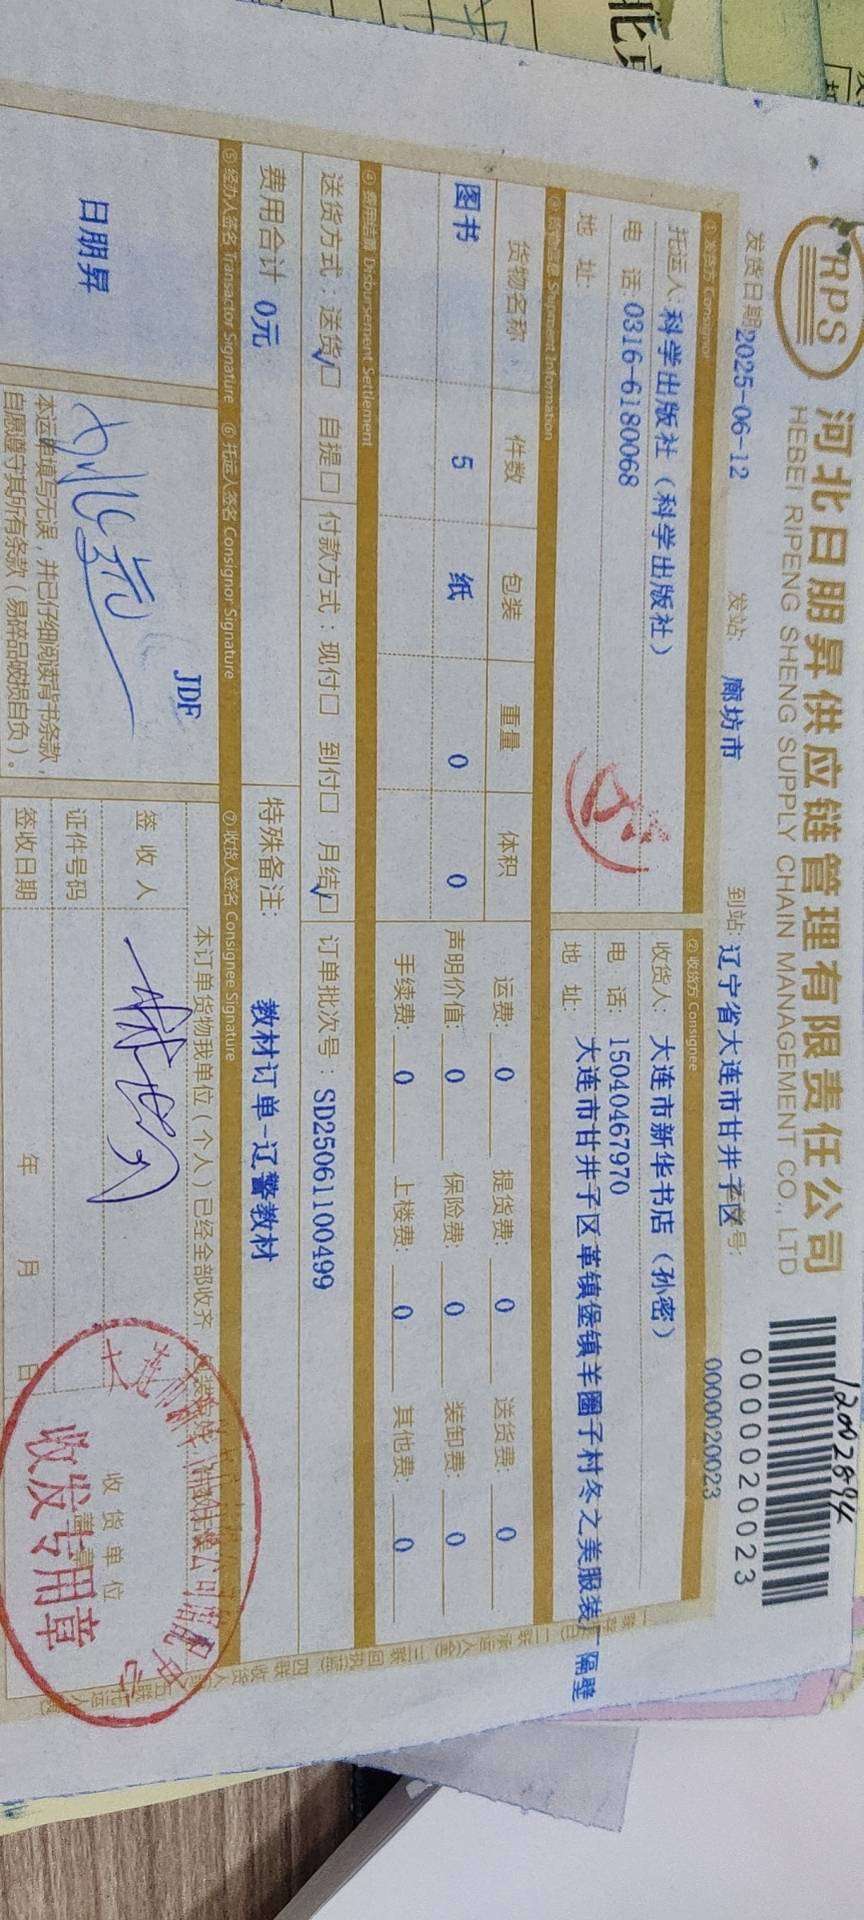 RPS
河北日朋昇供应链管理有限责任公司
HEBEI RIPENG SHENG SUPPLY CHAIN MANAGEMENT CO., LTD
12002894
0000020023
发货日期 2025-06-12 发站: 廊坊市 到站: 辽宁省大连市甘井子区 号: 0000020023
① 发货方 Consignor
托运人: 科学出版社（科学出版社）
电 话 0316-6180068
地 址:
② 收货方 Consignee
收货人: 大连市新华书店（孙密）
电 话: 15040467970
地 址: 大连市甘井子区革镇堡镇羊圈子村冬之美服装厂隔壁
③ 货物信息 Shipment Information
货物名称 件数 包装 重量 体积
图书 5 纸 0 0
运费: 0 提货费: 0 送货费: 0
声明价值: 0 保险费: 0 装卸费: 0
手续费: 0 上楼费: 0 其他费: 0
④ 费用结算 Disbursement Settlement
送货方式：送货☑ 自提□ 付款方式：现付□ 到付□ 月结☑ 订单批次号：SD25061100499
费用合计 0元 特殊备注: 教材订单-辽警教材
⑤ 经办人签名 Transactor Signature ⑥ 托运人签名 Consignor Signature ⑦ 收货人签名 Consignee Signature
日朋昇
JDF
本运单填写无误，并已仔细阅读背书条款，
自愿遵守其所有条款（易碎品破损自负）。
本订单货物我单位（个人）已经全部收齐，
签 收 人
证件号码
签收日期 年 月 日
收 货 单 位
收发专用章